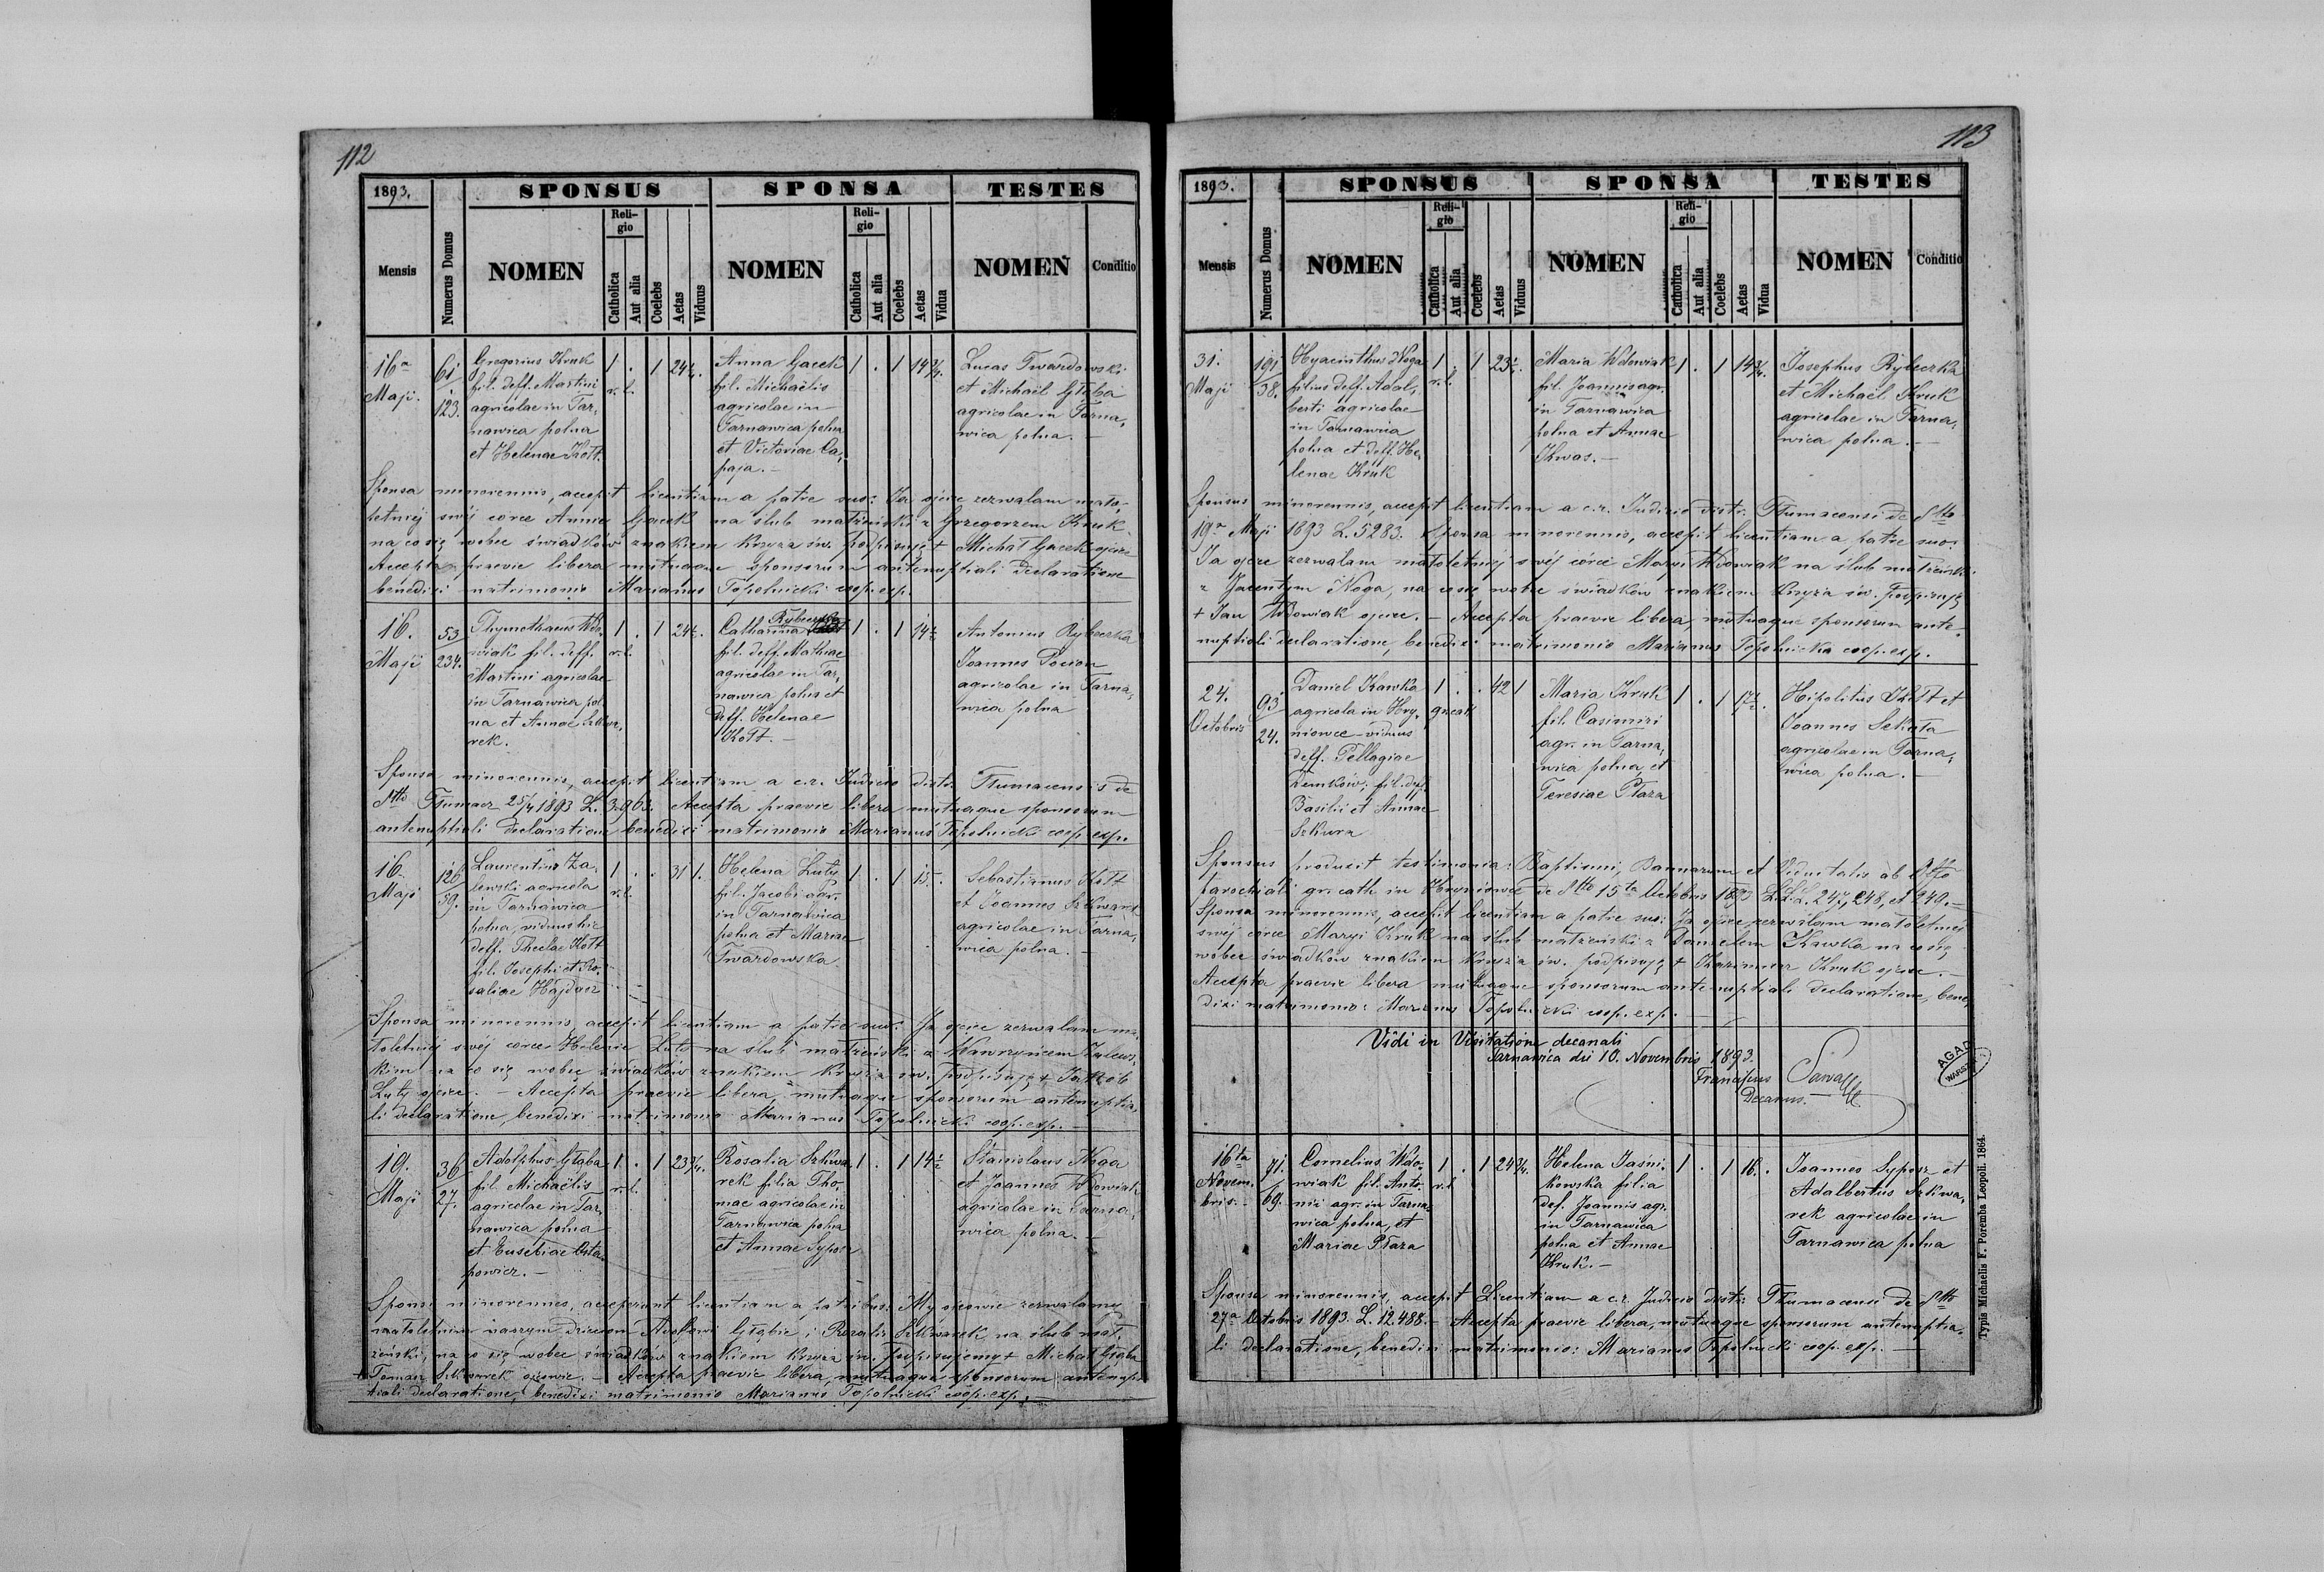 112
1893.
SPONSUS
SPONSA
TESTES
Mensis
Numerus Domus
NOMEN
Religio
Catholica
Aut alia
Coelebs
Aetas
Viduus
NOMEN
Religio
Catholica
Aut alia
Coelebs
Aetas
Vidua
NOMEN
Conditio
16a
Maji.
61
123.
Gregorius Kruk
fil. deff. Martini
agricolae in Tar,
nawica polna
et Helenae Kott.
1 . 1 24
r. l.
Anna Gacek
fil. Michaëlis
agricolae in
Tarnawica polna
et Victoriae Ca,
paja. —
1 . 1 19 3/4.
Lucas Twardowski
et Michaël Głąba
agricolae in Tarna,
wica polna. —
Sponsa minorennis, accepit licentiam a patre suo: Ja ojciec zezwalam mało-
letniej swej córce Annie Gacek na ślub małżeński z Grzegorzem Kruk
na co się wobec świadków znakiem krzyża św. podpisuję + Michał Gacek ojciec
Accepta praevie libera mutuaque sponsorum antenuptiali declaratione
benedixi matrimonio Marianus Topolnicki coop. exp.
16.
Maji
53
234.
Thymotheus Wdo,
wiak fil. deff.
Martini agricolae
in Tarnawica pol
na et Annae Szkwa,
rek.
1 . 1 24
r. l.
Rybeczka
Catharina
fil. deff. Mathiae
agricolae in Tar,
nawica polna et
deff. Helenae
Kott. —
1 . 1 19
Antonius Rybeczka
Joannes
agricolae in Tarna,
wica polna
Sponsa minorennis, accepit licentiam a c.r. Judicio distr. Tłumacensi de
dtto Tłumacz 25/4 1893 L. 3963. Accepta praevie libera mutuaque sponsorum
antenuptiali declaratione benedixi matrimonio Marianus Topolnicki coop. exp.
16.
Maji
126
59.
Laurentius Za,
lewski agricola
in Tarnawica
polna, viduus hic
deff. Theclae Kott
fil. Josephi et Ro,
saliae Hajdacz
1 . . 31 1.
r. l.
Helena Luty
fil. Jacobi agr.
in Tarnawica
polna et Mariae
Twardowska
1 . 1 15 .
Sebastianus Kott
et Joannes Szkwarek
agricolae in Tarna,
wica polna. —
Sponsa minorennis, accepit licentiam a patre suo: Ja ojciec zezwalam ma,
łoletniej swej córce Helenie Luty na ślub małżeński z Wawrzyńcem Zalews,
kim na co się wobec świadków znakiem krzyża św. podpisuję + Jakób
Luty ojciec. — Accepta praevie libera, mutuaque sponsorum antenuptia,
li declaratione, benedixi matrimonio Marianus Topolnicki coop. exp. —
19.
Maji
36
27.
Adolphus Głąba
fil. Michaëlis
agricolae in Tar,
nawica polna
et Eusebiae Osta,
powicz. —
1 . 1 23 3/4.
r. l.
Rosalia Szkwa,
rek filia Tho,
mae agricolae in
Tarnawica polna
et Annae Syposz
1 . 1 14
Stanislaus Noga
et Joannes Wdowiak
agricolae in Tarna,
wica polna. —
Sponsi minorennes, acceperunt licentiam a patribus: My ojcowie zezwalamy
małoletnim naszym dzieciom Adolfowi Głąbie i Rozalii Szkwarek na ślub mał,
żeński, na co się wobec świadków znakiem krzyża św. podpisujemy + Michał Głąba
+ Tomasz Szkwarek ojcowie. — Accepta praevie libera, mutuaque sponsorum antenup
tiali declaratione, benedixi matrimonio Marianus Topolnicki coop. exp.
113
1893.
SPONSUS
SPONSA
TESTES
Mensis
Numerus Domus
NOMEN
Religio
Catholica
Aut alia
Coelebs
Aetas
Viduus
NOMEN
Religio
Catholica
Aut alia
Coelebs
Aetas
Vidua
NOMEN
Conditio
31.
Maji
191
38.
Hyacinthus Noga
filius deff. Adal,
berti agricolae
in Tarnawica
polna et deff. He,
lenae Kruk
1 . 1 23
r. l.
Maria Wdowiak
fil. Joannis agr.
in Tarnawica
polna et Annae
Kwas. —
1 . 1 19 3/4.
Josephus Rybeczka
et Michaël Kruk
agricolae in Tarna,
wica polna. —
Sponsus minorennis, accepit licentiam a c.r. Judicio distr. Tłumacensi de dtto
19a Maji 1893 L. 5283. Sponsa minorennis, accepit licentiam a patre suo:
Ja ojciec zezwalam małoletniej swej córce Maryi Wdowiak na ślub małżeński
z Jacentym Noga, na co się wobec świadków znakiem krzyża św. podpisuję
+ Jan Wdowiak ojciec. — Accepta praevie libera, mutuaque sponsorum ante,
nuptiali declaratione, benedixi matrimonio Marianus Topolnicki coop. exp.
24.
Octobris
93
24.
Daniel Kawka
agricola in Hry,
niowce viduus
deff. Pellagiae
Demków, fil. deff.
Basilii et Annae
Szkura
1 . . 42 1
gr. cath.
Maria Kruk
fil. Casimiri
agr. in Tarna,
wica polna, et
Teresiae Płaza
1 . 1 17
Hipolitus Kott et
Joannes Sekuta
agricolae in Tarna,
wica polna. —
Sponsus produxit testimonia: Baptismi, Bannorum et Viduitatis ab Offo
Parochiali gr. cath. in Hryniowce de dtto 15ta Octobris 1893 LLL. 247, 248, et 249. —
Sponsa minorennis, accepit licentiam a patre suo: Ja ojciec zezwalam małoletniej
swej córce Maryi Kruk na ślub małżeński z Danielem Kawka na co się
wobec świadków znakiem krzyża św. podpisuję + Kazimierz Kruk ojciec. —
Accepta praevie libera mutuaque sponsorum antenuptiali declaratione, bene,
dixi matrimonio: Marianus Topolnicki coop. exp. —
Vidi in Visitatione decanali
Tarnawica die 10. Novembris 1893.
Franciscus
Decanus.
AGAD
WARSZ
16ta
Novem,
bris. —
71.
69.
Cornelius Wdo,
wiak fil. Anto,
nii agr. in Tarna,
wica polna, et
Mariae Płaza
1 . 1 24 3/4.
r. l.
Helena Jaśni,
kowska filia
def. Joannis agr.
in Tarnawica
polna et Annae
Kruk. —
1 . 1 16. .
Joannes Syposz et
Adalbertus Szkwa,
rek agricolae in
Tarnawica polna
Sponsa minorennis, accepit Licentiam a c.r. Judicio distr. Tłumacensi de dtto
27a Octobris 1893. L. 12.488. — Accepta praevie libera, mutuaque sponsorum antenuptia,
li declaratione, benedixi matrimonio: Marianus Topolnicki coop. exp. —
Typis Michaelis F. Poremba Leopoli. 1864.